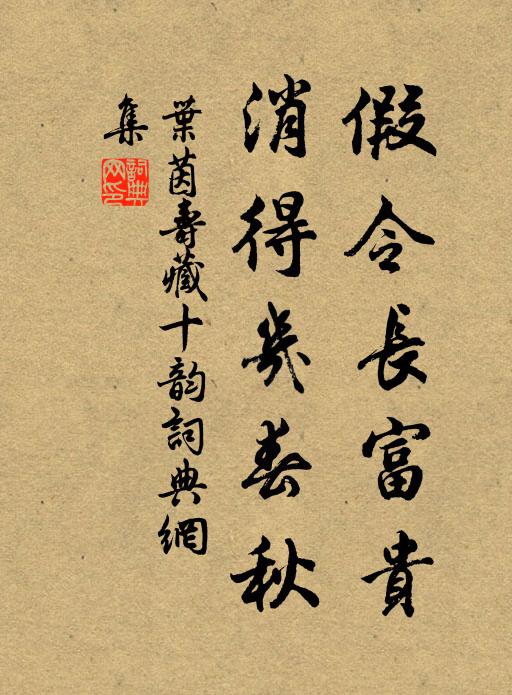 假令長富貴
消得幾春秋
葉茵壽藏十韵詞典網
集
詞典
网印